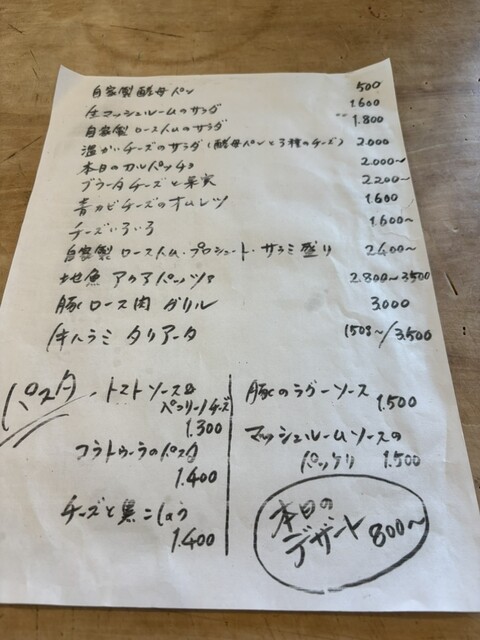 自家製酵母パン 500
生マッシュルームのサラダ 1.600
自家製ローストハムのサラダ 1.800
温かいチーズのサラダ(酵母パンと3種のチーズ) 2.000
本日のカルパッチョ 2.000〜
ブラータチーズと果実 2.200〜
青カビチーズのオムレツ 1.600
チーズいろいろ 1.600〜
自家製 ローストハム・プロシュート・サラミ盛り 2.400〜
地魚 アクアパッツァ 2.800〜3.500
豚ロース肉 グリル 3.000
牛ハラミ タリアータ 150g〜/3.500
パスタ
トマトソース&
ペコリーノチーズ
1.300
コラトゥーラのパスタ
1.400
チーズと黒こしょう
1.400
豚のラグーソース
1.500
マッシュルームソースの
パッケリ 1.500
本日の
デザート 800〜